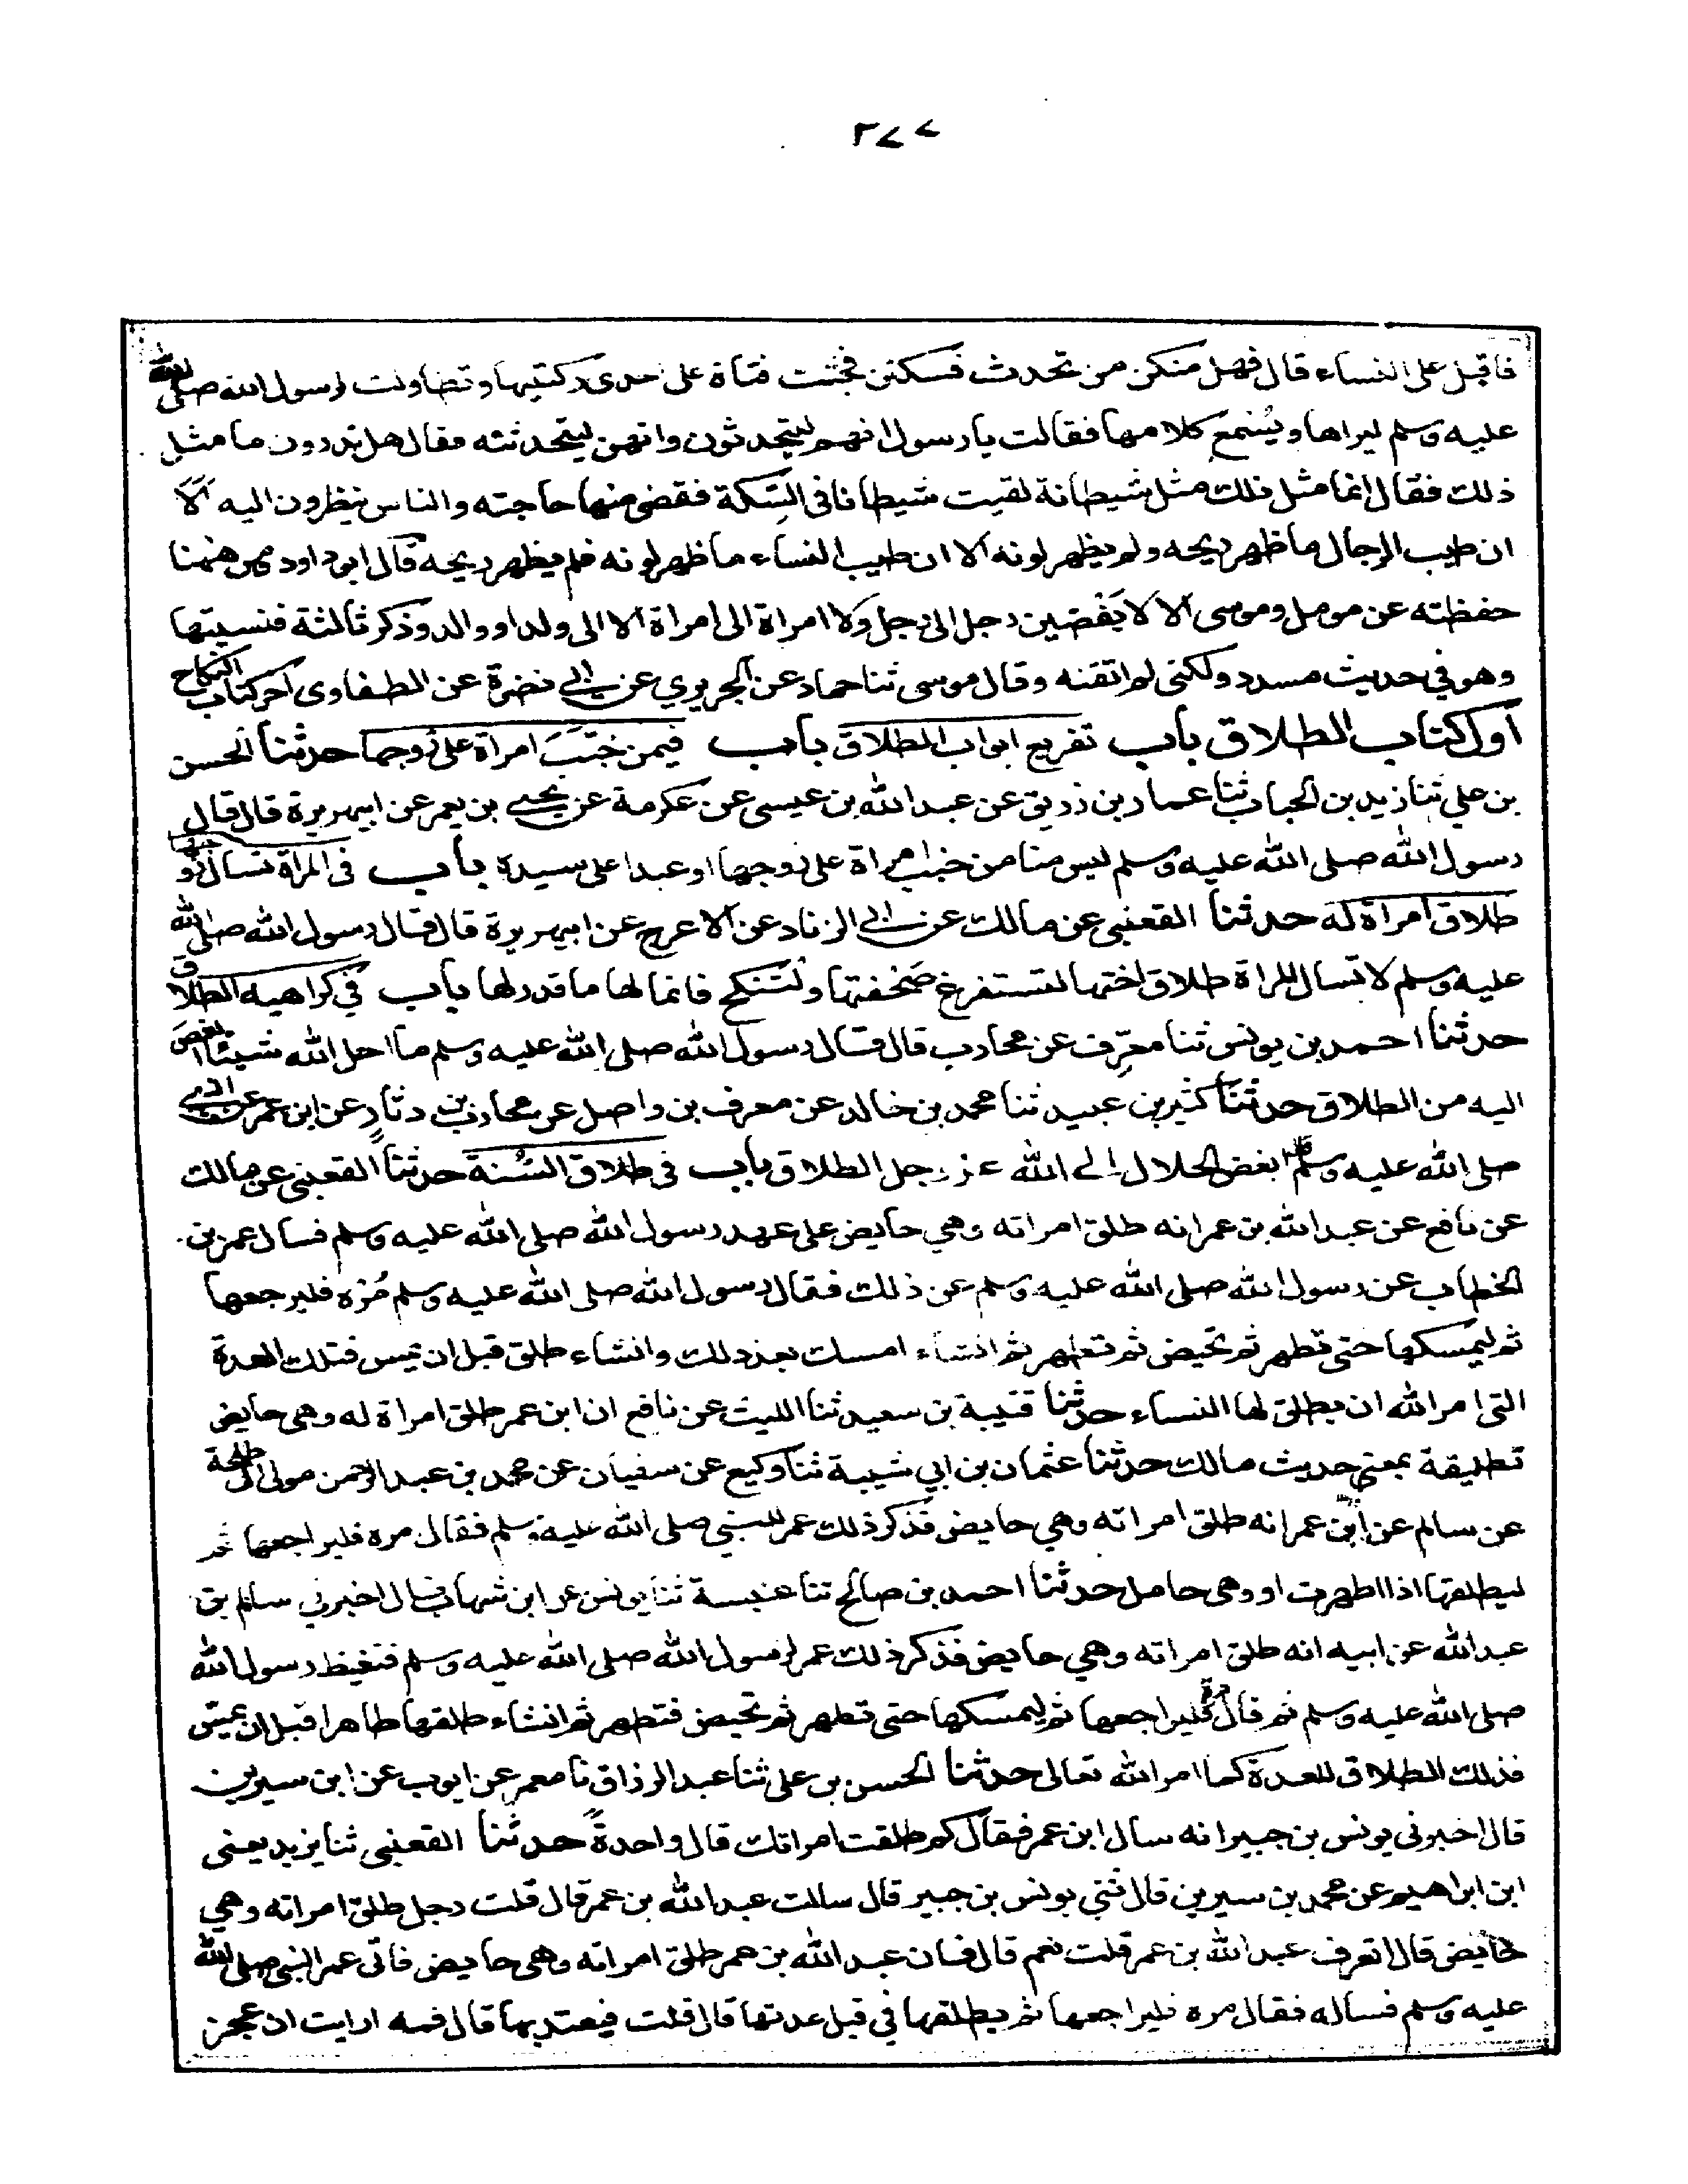 ٢٧٧
فاقبل على النساء قال فهل منكن من تحدث فسكتن فجثت فتاة على احدى ركبتيها وتطاولت لرسول الله صلى الله
عليه وسلم ليراها ويسمع كلامها فقالت يا رسول انهم ليتحدثون وانهن ليتحدثنه فقال هل تدرون ما مثل
ذلك فقال انما مثل ذلك مثل شيطانة لقيت شيطانا في السكة فقضى منها حاجته والناس ينظرون اليه ألا
ان طيب الرجال ما ظهر ريحه ولم يظهر لونه ألا ان طيب النساء ما ظهر لونه فلم يظهر ريحه قال ابو داود من ههنا
حفظته عن مومل وموسى ألا لا يفضين رجل الى رجل ولا امراة الى امراة الا الى ولد او والد وذكر ثالثة فنسيتها
وهو في حديث مسدد ولكني لم اتقنه وقال موسى ثنا حماد عن الجريري عن ابي نضرة عن الطفاوى آخر كتاب النكاح
أول كتاب الطلاق باب تفريع ابواب الطلاق باب فيمن خبّبَ امراة على زوجها حدثنا الحسن
بن علي ثنا زيد بن الحباب ثنا عمار بن زريق عن عبد الله بن عيسى عن عكرمة عن يحيى بن يعمر عن ابي هريرة قال قال
رسول الله صلى الله عليه وسلم ليس منا من خبب امراة على زوجها او عبدا على سيده باب في المراة تسال زوجها
طلاق امراة له حدثنا القعنبي عن مالك عن ابي الزناد عن الاعرج عن ابي هريرة قال قال رسول الله صلى الله
عليه وسلم لا تسال المراة طلاق اختها لتستفرغ صحفتها ولتنكح فانما لها ما قدر لها باب في كراهيه الطلاق
حدثنا احمد بن يونس ثنا معرّف عن محارب قال قال رسول الله صلى الله عليه وسلم ما احل الله شيئا ابغض
اليه من الطلاق حدثنا كثير بن عبيد ثنا محمد بن خالد عن معرف بن واصل عن محارب بن دثار عن ابن عمر عن النبي
صلى الله عليه وسلم قال ابغض الحلال الى الله عز وجل الطلاق باب في طلاق السُّنة حدثنا القعنبي عن مالك
عن نافع عن عبد الله بن عمر انه طلق امراته وهي حايض على عهد رسول الله صلى الله عليه وسلم فسال عمر بن
الخطاب عن رسول الله صلى الله عليه وسلم عن ذلك فقال رسول الله صلى الله عليه وسلم مُرْه فليرجعها
ثم ليمسكها حتى تطهر ثم تحيض ثم تطهر ثم ان شاء امسك بعد ذلك وان شاء طلق قبل ان يمس فتلك العدة
التي امر الله ان يطلق لها النساء حدثنا قتيبة بن سعيد ثنا الليث عن نافع ان ابن عمر طلق امراة له وهي حايض
تطليقة بمعنى حديث مالك حدثنا عثمان بن ابي شيبة ثنا وكيع عن سفيان عن محمد بن عبد الرحمن مولى آل طلحة
عن سالم عن ابن عمر انه طلق امراته وهي حايض فذكر ذلك عمر للنبي صلى الله عليه وسلم فقال مره فليراجعها ثم
ليطلقها اذا اطهرت او وهي حامل حدثنا احمد بن صالح ثنا عنبسة ثنا يونس عن ابن شهاب قال اخبرني سالم بن
عبد الله عن ابيه انه طلق امراته وهي حايض فذكر ذلك عمر لرسول الله صلى الله عليه وسلم فتغيظ رسول الله
صلى الله عليه وسلم ثم قال مره فليراجعها ثم ليمسكها حتى تطهر ثم تحيض فتطهر ثم ان شاء طلقها طاهرا قبل ان يمس
فذلك الطلاق للعدة كما امر الله تعالى حدثنا الحسن بن علي ثنا عبد الرزاق نا معمر عن ايوب عن ابن سيرين
قال اخبرني يونس بن جبير انه سال ابن عمر فقال كم طلقت امراتك قال واحدةً حدثنا القعنبي ثنا يزيد يعني
ابن ابراهيم عن محمد بن سيرين قال ثني يونس بن جبير قال سالت عبد الله بن عمر قال قلت رجل طلق امراته وهي
حايض قال اتعرف عبد الله بن عمر قلت نعم قال فان عبد الله بن عمر طلق امراته وهي حايض فاتى عمر النبي صلى الله
عليه وسلم فساله فقال مره فليراجعها ثم يطلقها في قبل عدتها قال قلت فيعتد بها قال فمه ارايت ان عجز